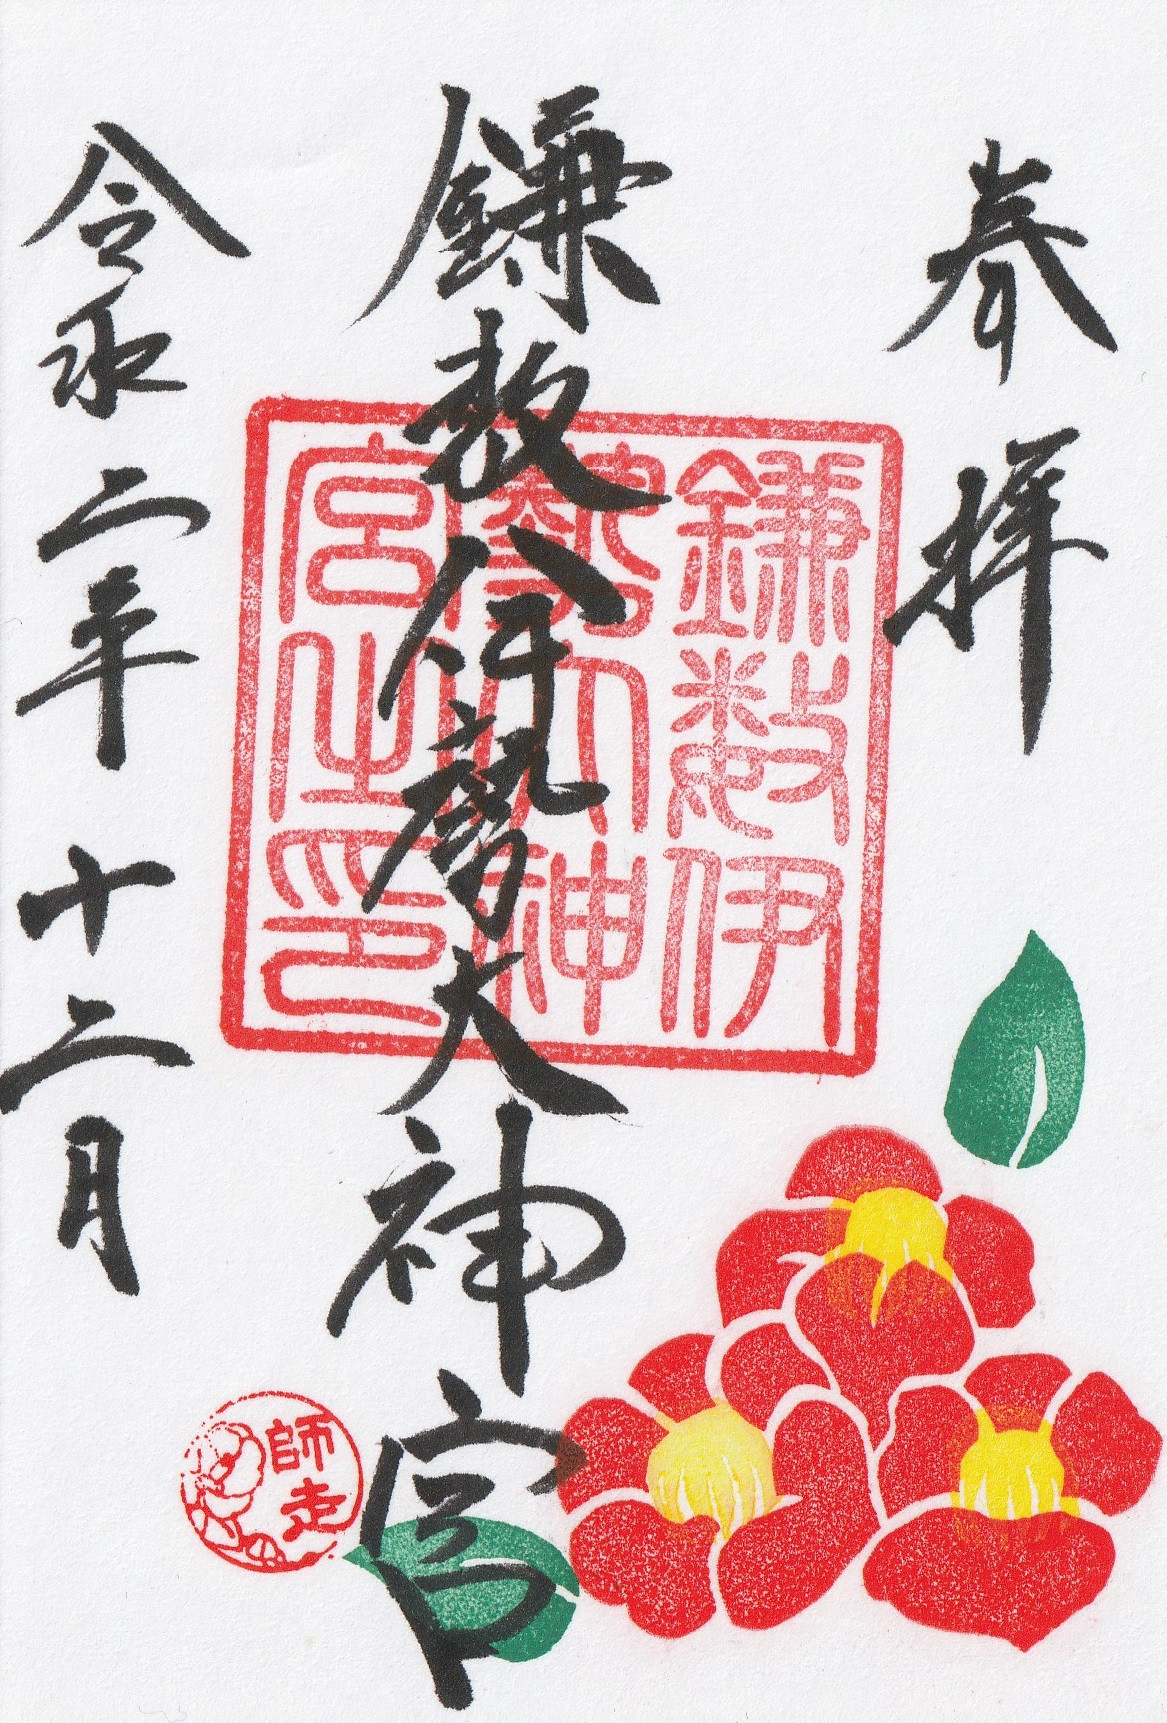 奉拝
鎌数伊勢大神宮
令和二年十二月
鎌数伊
勢大神
宮之印
師走